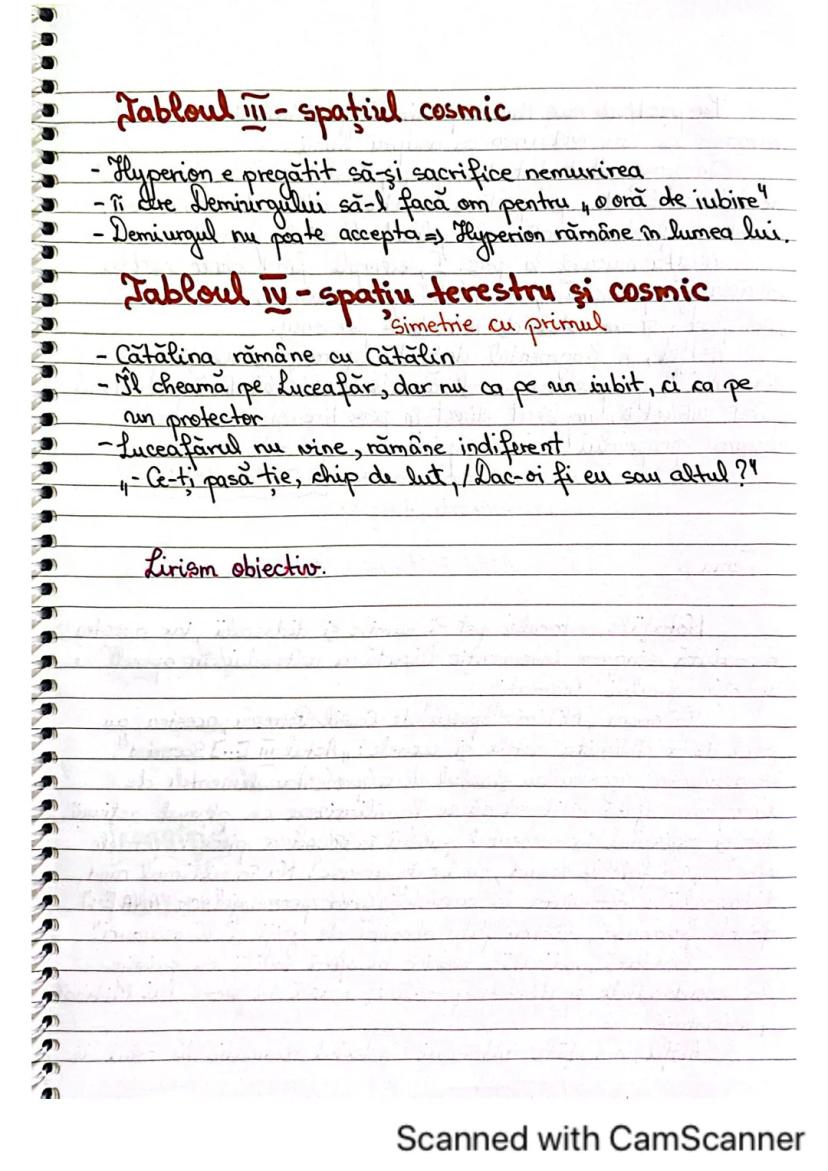 Tabloul III - spațiul cosmic
- Hyperion e pregătit să-și sacrifice nemurirea
- îi cere Demiurgului să-l facă om pentru „o oră de iubire"
- Demiurgul nu poate accepta => Hyperion rămâne în lumea lui.
Tabloul IV - spațiu terestru și cosmic
simetrie cu primul
- Cătălina rămâne cu Cătălin
- Îl cheamă pe Luceafăr, dar nu ca pe un iubit, ci ca pe
un protector
- Luceafărul nu vine, rămâne indiferent
„- Ce-ți pasă ție, chip de lut, / Dac-oi fi eu sau altul ?"
Lirism obiectiv.
Scanned with CamScanner